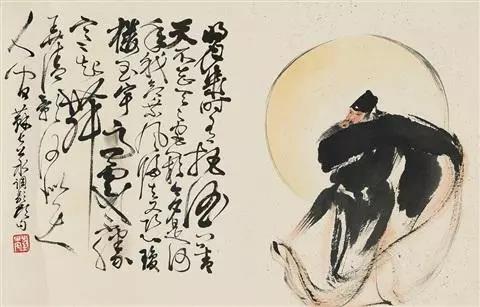 明月幾時有把酒問青
天不知天上宮闕今夕是何
年我欲乘風歸去又恐瓊
樓玉宇高處不勝
寒起舞
弄清影何似在
人間 蘇公水調歌頭句